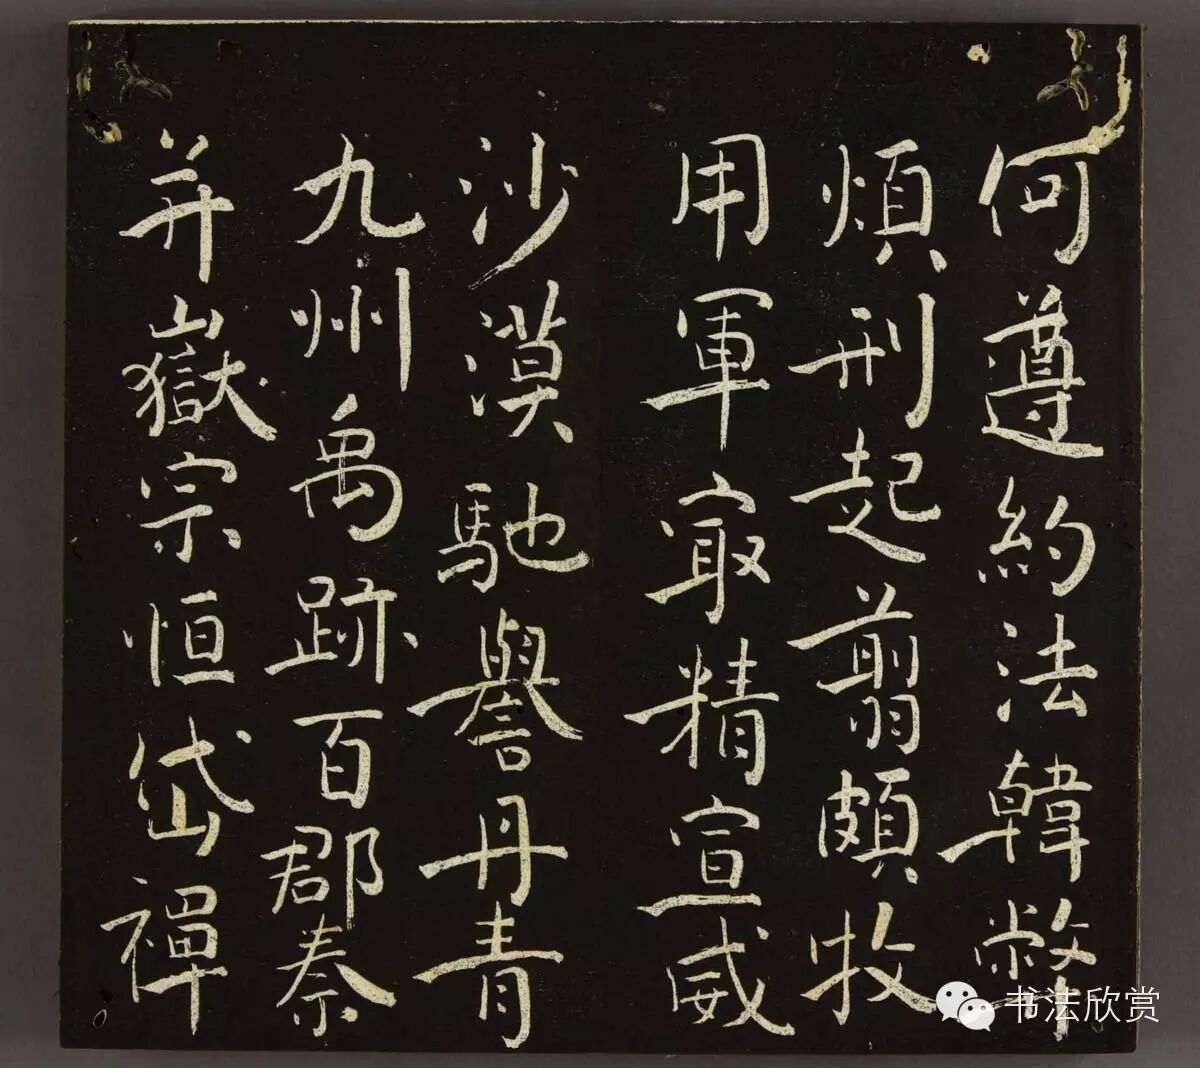 何遵約法韓弊
煩刑起翦頗牧
用軍最精宣威
沙漠馳譽丹青
九州禹跡百郡秦
并嶽宗恒岱禪
书法欣赏